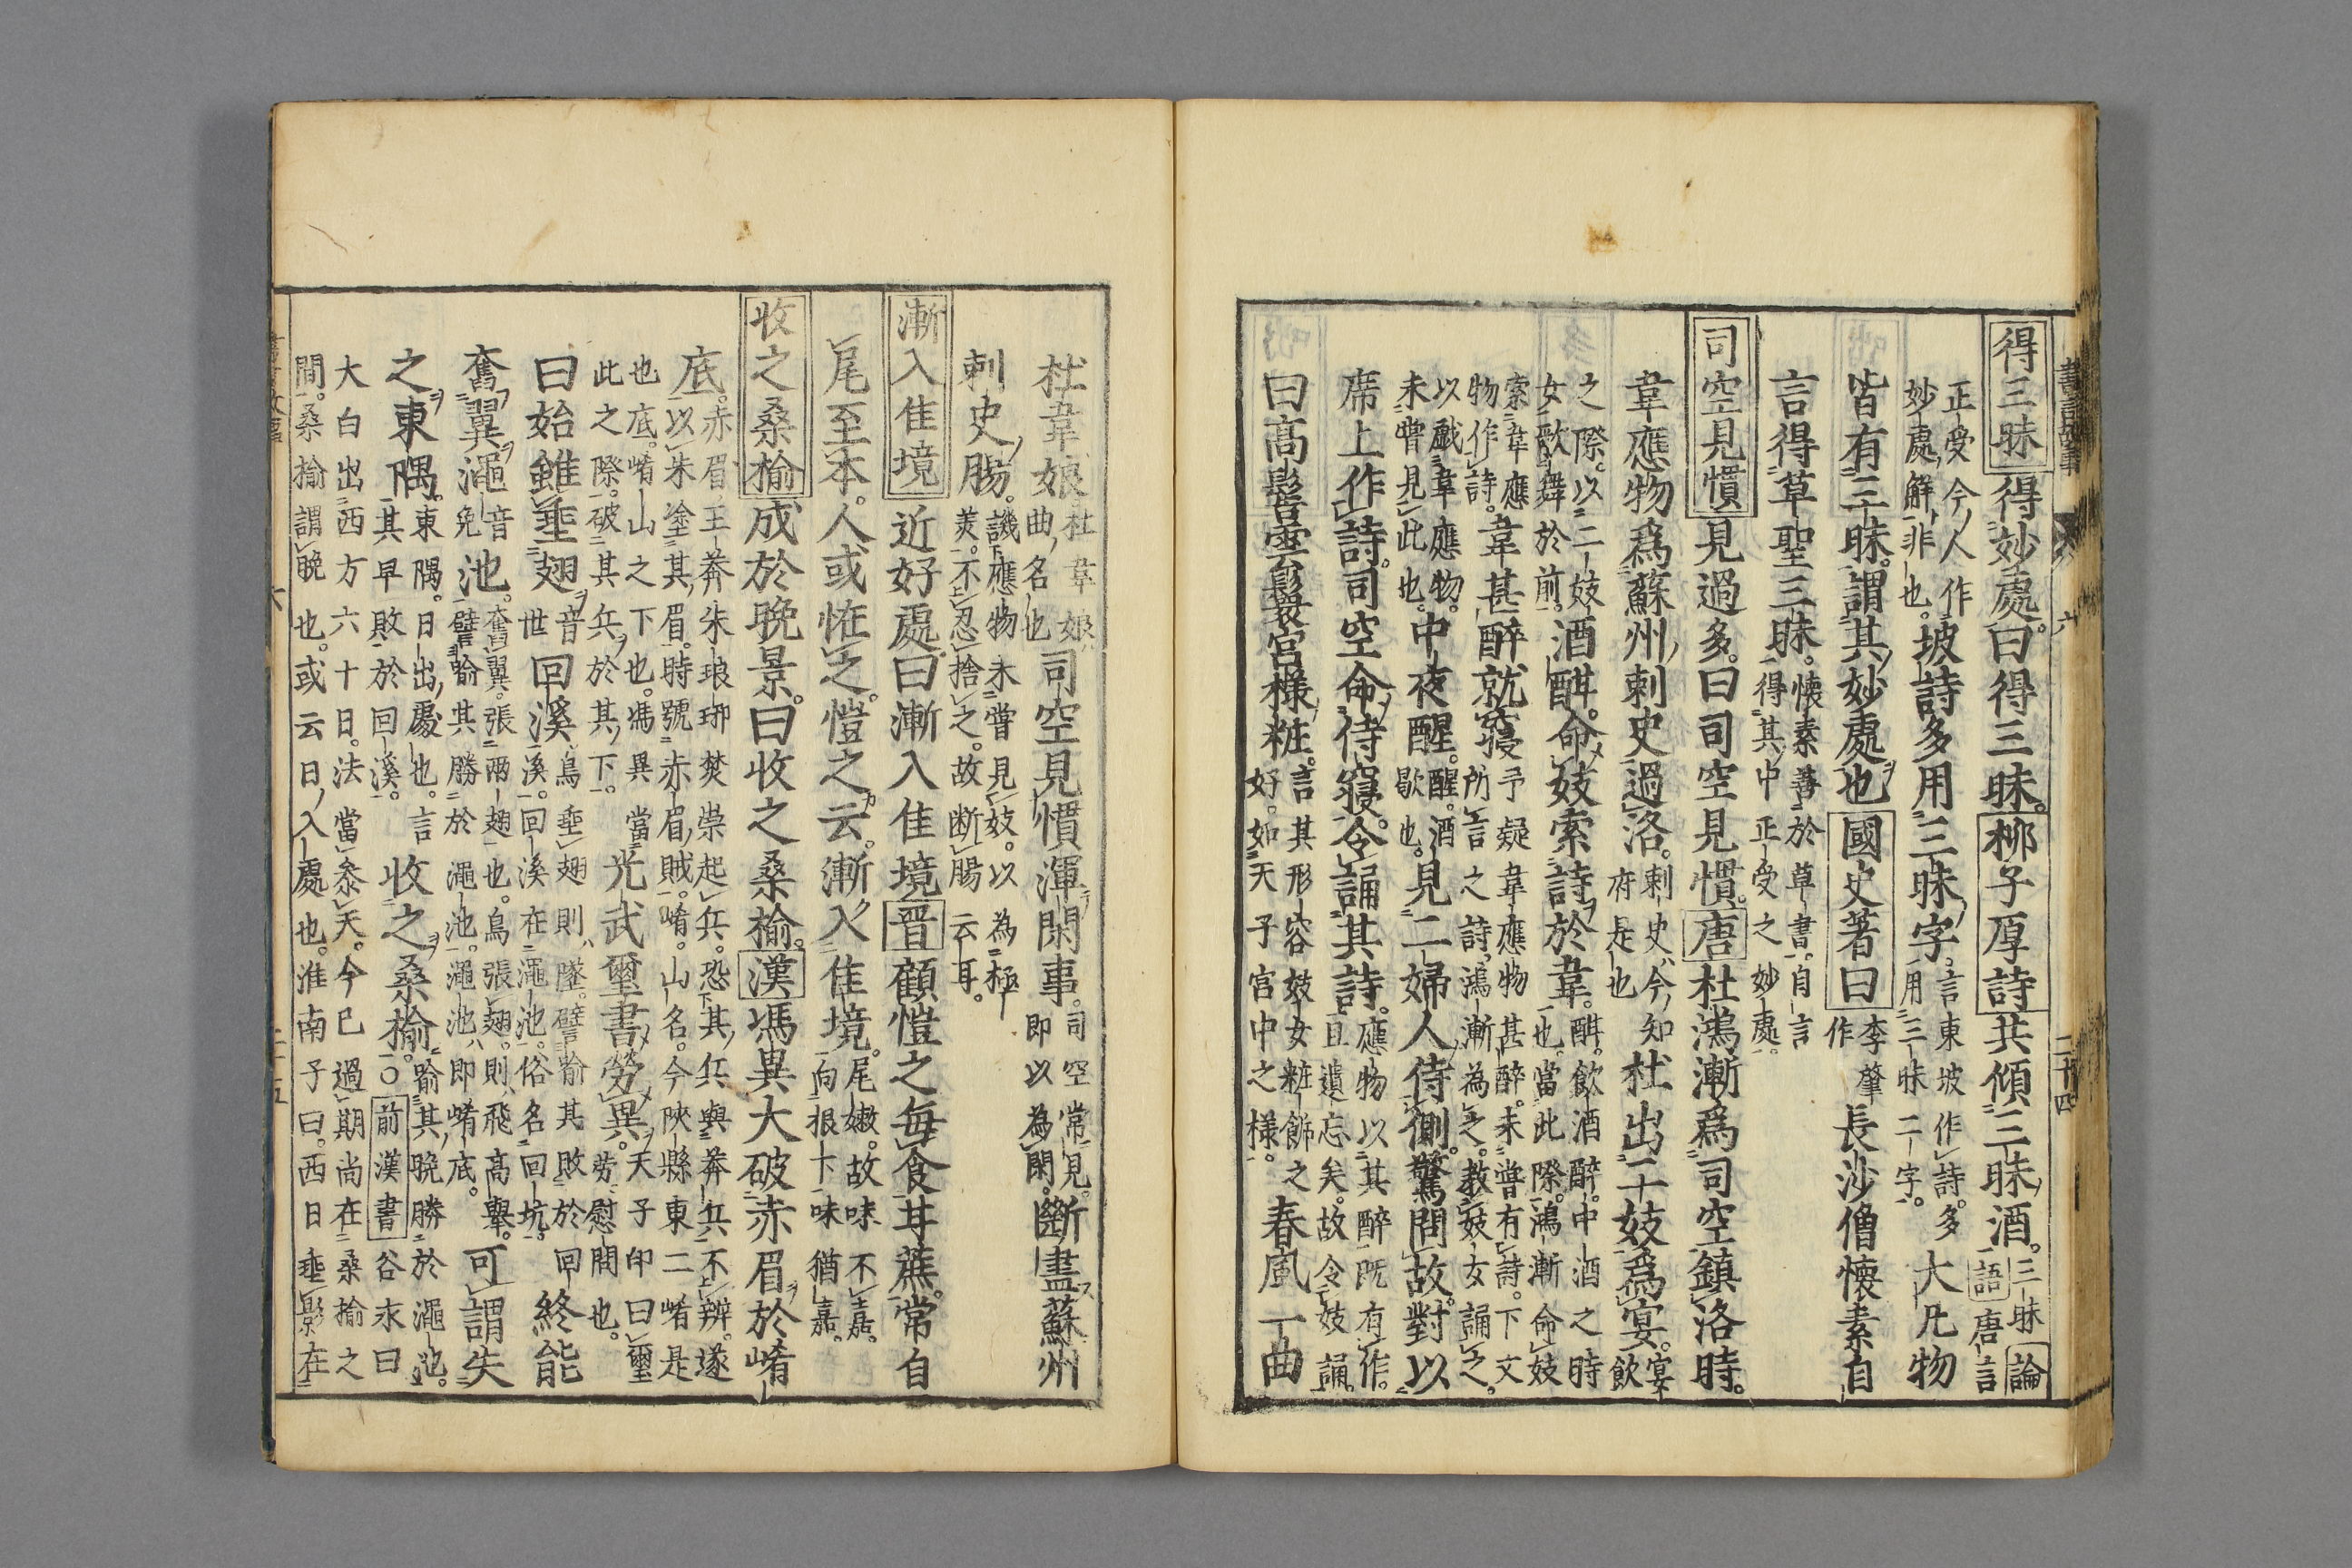 書言故事 六 二十四
得三昧 得妙處。曰得三昧。柳子厚詩共傾三昧酒。三昧論語唐言
正受今人作妙處解非也。坡詩多用三昧字。言東坡作詩。多用三昧二字。大凡物
皆有三昧。謂其妙處也國史著曰李肇作長沙僧懷素自
言得草聖三昧。懷素善於草書。自言得其中正受之妙處。
司空見慣 見過多。曰司空見慣。唐杜鴻漸爲司空鎮洛時。
韋應物爲蘇州刺史過洛。刺史今知府是也杜出二妓爲宴。宴飲
之際。以二妓女歌舞於前。酒酣。命妓索詩於韋。酣。飲酒醉。中酒之時也。當此際。鴻漸命妓
索韋應物作詩。韋甚醉就寢予疑韋應物甚醉。未嘗有詩。下文所言之詩。鴻漸為之。教妓女誦之。
以戲韋應物。未嘗見此也。中夜醒。醒。酒歇也。見二婦人侍側。驚問故。對以
席上作詩。司空命侍寢。令誦其詩。應物以其醉既有作。且遺忘矣。故令妓誦。
曰高髻雲鬟宮樣粧。言其形容妓女粧飾之好。如天子宮中之樣。春風一曲
杜韋娘杜韋娘曲名也司空見慣渾閑事。司空常見。即以為閑。斷盡蘇州
刺史腸。譏應物未嘗見妓。以為極羙。不忍捨之。故断腸云耳。
漸入佳境 近好處。曰漸入佳境晋顧愷之每食甘蔗。常自
尾至本。人或怪之。愷之云。漸入佳境。尾嫩。故味不嘉。向根下味猶嘉。
收之桑榆 成於晚景。曰收之桑榆。漢馮異大破赤眉於崤
底。赤眉王莽朱琅琊樊崇起兵。恐其兵與莽兵不辨。遂以朱塗其眉。時號赤眉賊。崤。山名。今陝縣東二崤是
也底。崤山之下也。馮異當此之際。破其兵於其下。光武璽書勞異。天子印曰璽勞。慰問也。
曰始雖垂翅音世回溪鳥垂翅則墜。譬喻其敗於回溪。回溪在澠池。俗名回坑。終能
奮翼澠音免池。奮翼。張兩翅也。鳥張翅。則飛高舉。譬喻其勝於澠池。澠池即崤底。可謂失
之東隅。東隅。日出處也。言其早敗於回溪。收之桑榆。喻其晚勝於澠池。○前漢書谷永曰
大白出西方六十日。法當參天。今已過期尚在桑揄之
間。桑榆謂晚也。或云日入處也。淮南子曰。西日垂影在
六